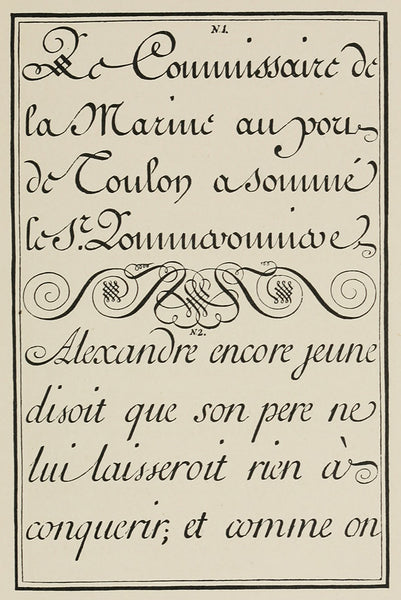 N 1.
Le Commissaire de
la Marine au port
de Toulon a sommé
le Sr.
N 2.
Alexandre encore jeune
disoit que son pere ne
lui laisseroit rien à
conquerir; et comme on